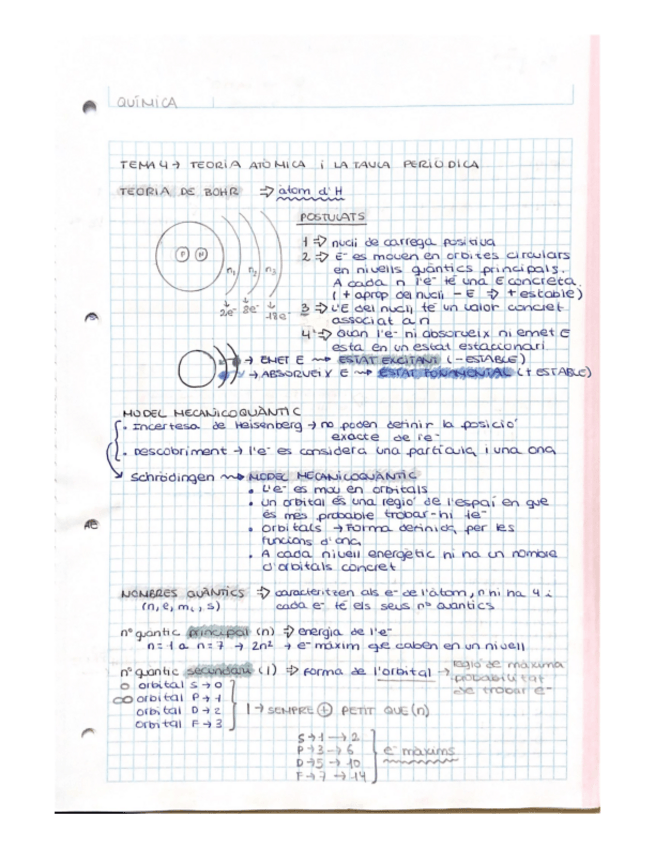 QUÍMICA
TEMA 4 → TEORIA ATÒMICA i LA TAULA PERIÒDICA
TEORIA DE BOHR ⇒ àtom d'H
POSTULATS
1 ⇒ nucli de carrega positiva
2 ⇒ E⁻ es mouen en orbites circulars
en nivells quàntics principals.
A cada n l'e⁻ té una E concreta.
(+ aprop del nucli - E ⇒ + estable)
3 ⇒ L'E del nucli té un valor concret
associat a n
4 ⇒ Quan l'e⁻ ni absorveix ni emet E
esta en un estat estacionari.
P N
n₁ n₂ n₃
2e⁻ 8e⁻ 18e⁻
→ EMET E ⇝ ESTAT EXCITANT (-ESTABLE)
→ ABSORVEIX E ⇝ ESTAT FONAMENTAL (+ ESTABLE)
MODEL MECANICOQUÀNTIC
• Incertesa de Heisenberg → no poden definir la posició
exacte de l'e⁻
• Descobriment → l'e⁻ es considera una partícula i una ona
Schrödingen ⇝ MODEL MECANICOQUÀNTIC
• L'e⁻ es mou en orbitals
• un orbital és una regió de l'espai en que
és més probable trobar-hi l'e⁻
• orbitals → Forma definida, per les
funcions d'ona
• A cada nivell energètic hi ha un nombre
d'orbitals concret
NOMBRES QUÀNTICS ⇒ caracteritzen als e⁻ de l'àtom, n'hi ha 4 i
(n, e, mₗ, s) cada e⁻ té els seus nº quantics
nº quantic principal (n) ⇒ energia de l'e⁻
n = 1 a n = 7 → 2n² → e⁻ màxim que caben en un nivell
nº quantic secundari (l) ⇒ forma de l'orbital → regió de màxima
probabilitat
de trobar e⁻
orbital S → 0
orbital P → 1
orbital D → 2
orbital F → 3
l → SEMPRE + PETIT QUE (n)
S → 1 → 2
P → 3 → 6
D → 5 → 10
F → 7 → 14
e⁻ màxims